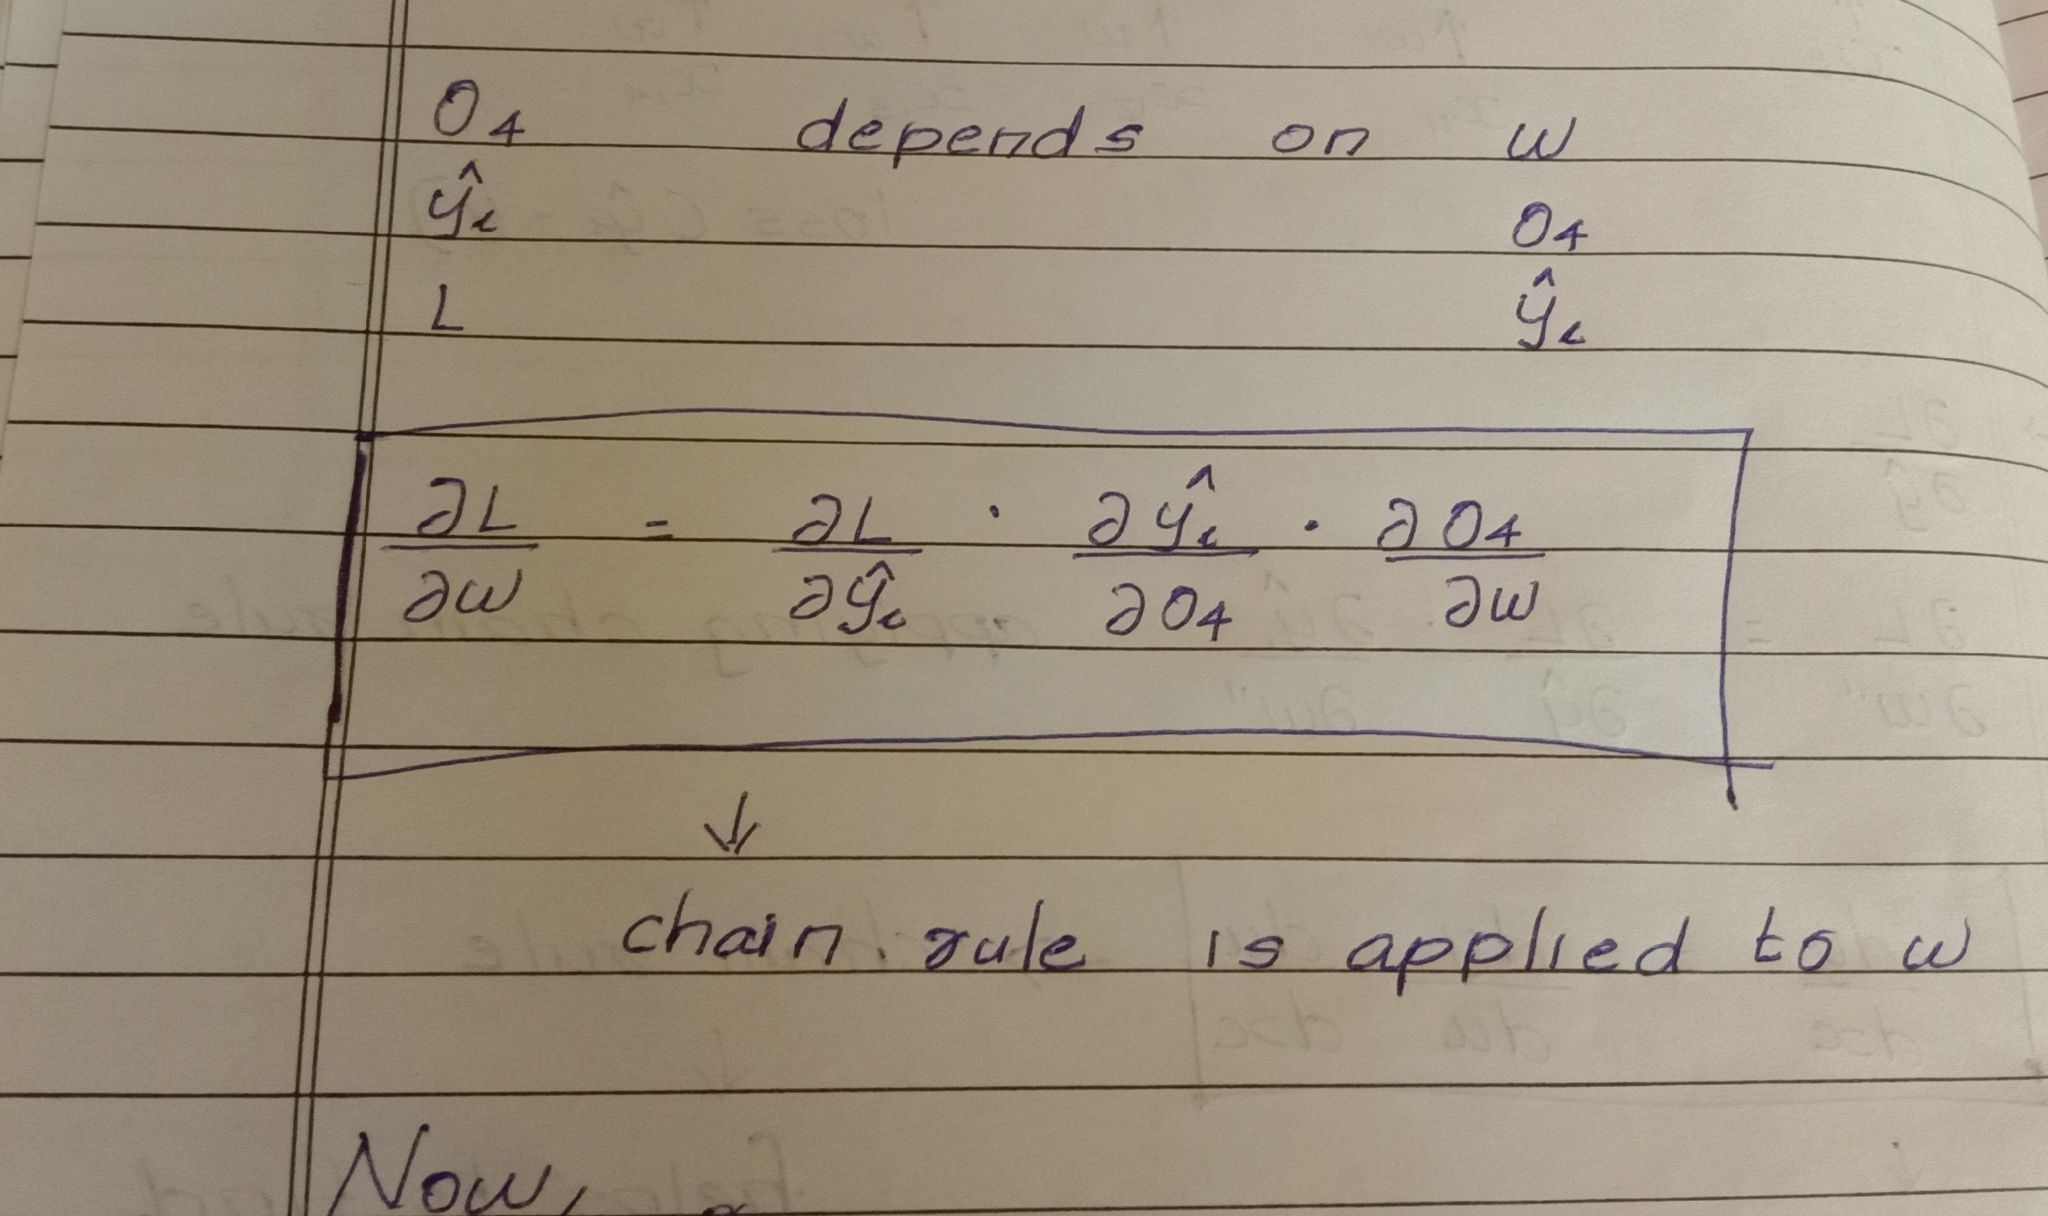 O₄ depends on w
ŷᵢ O₄
L ŷᵢ
∂L/∂w = ∂L/∂ŷᵢ · ∂ŷᵢ/∂O₄ · ∂O₄/∂w
↓
chain rule is applied to w
Now,